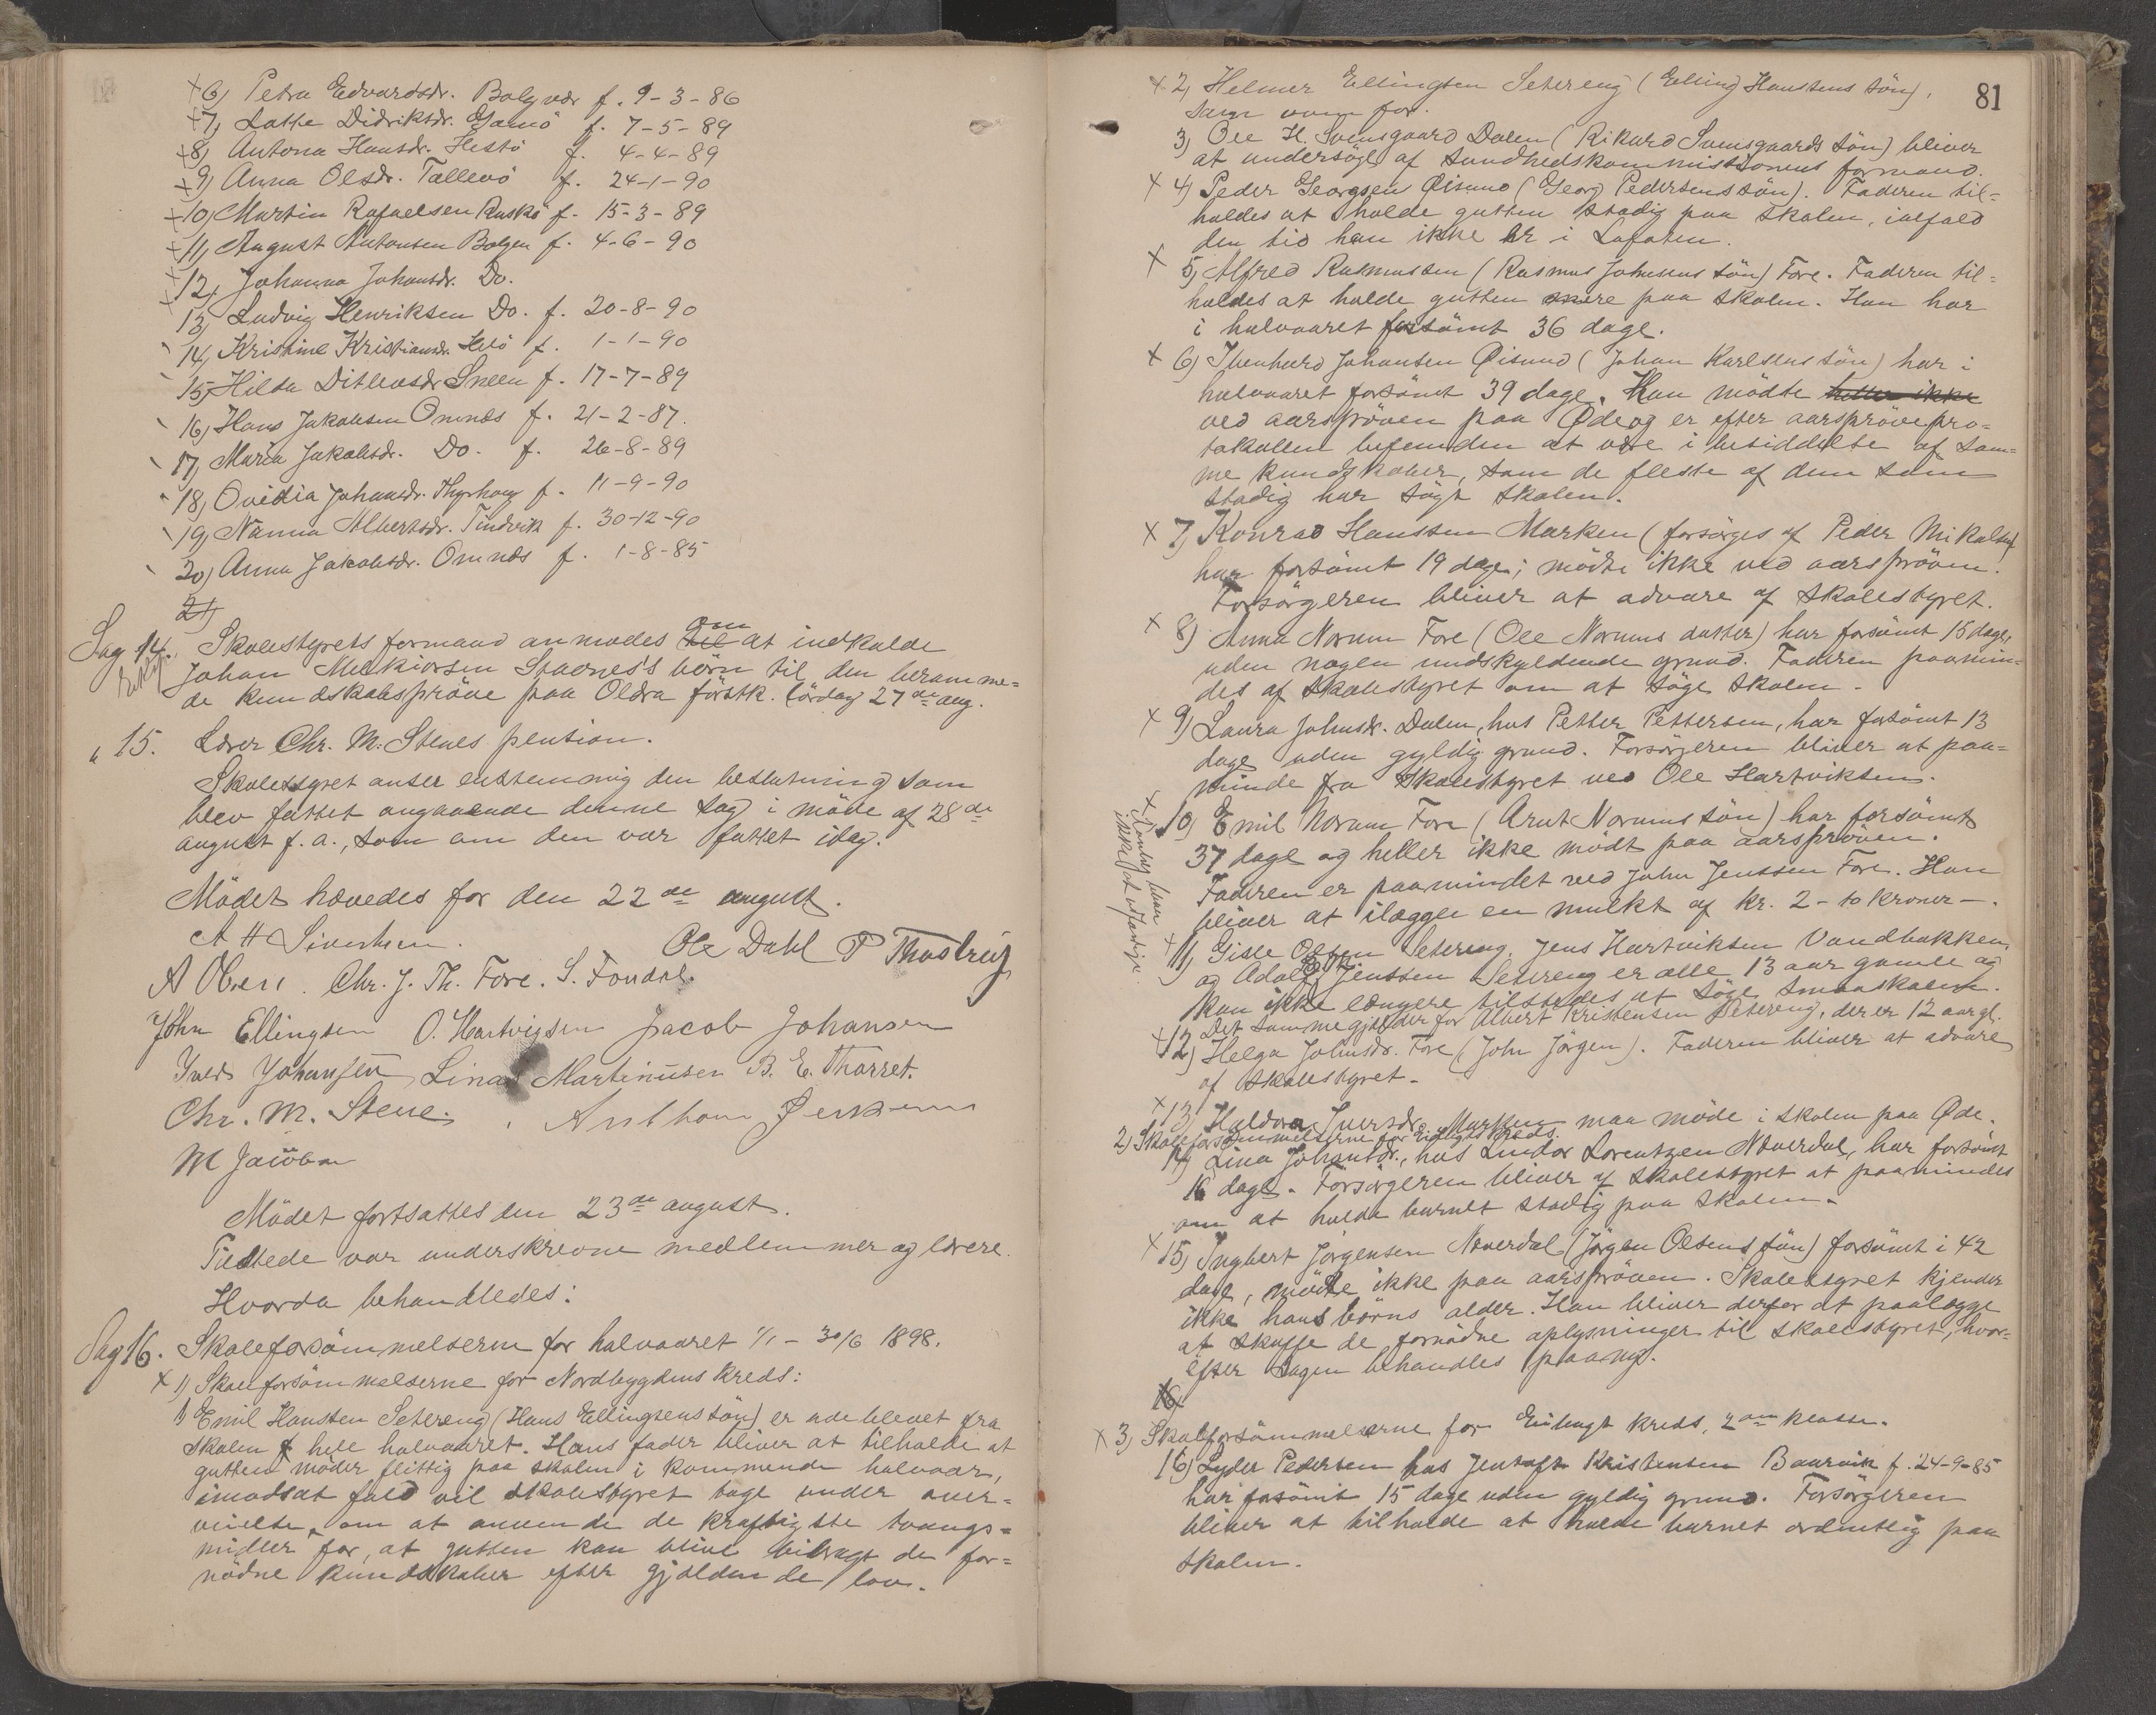 +6) Petra Edvardsdr. Bolgvær f. 9-3-86
+7) Lotte Didriksdr. Gjærnö f. 7-5-89
+8) Antona Hansdr. Hestö f. 4-4-89
+9) Anna Olsdr. Tællevö f. 24-1-90
+10) Martin Rafaelsen Raskö f. 15-3-89
+11) August Antonsen Bolgen f. 4-6-90
+12) Johanna Johansdr. Do.
13) Ludvig Henriksen Do. f. 20-8-90
14) Kristine Kristiansdr. Helö f. 1-1-90
15) Hilda Ditlevsdr. Sneen f. 17-7-89
16) Hans Jakobsen Omnes f. 21-2-87.
17) Maria Jakobsdr. Do. f. 26-8-89
18) Ovidia Johansdr. f. 11-9-90
19) Nanna Albertsdr. Tindvik f. 30-12-90
20) Anna Jakobsdr. Omnæs f. 1-8-85
21)
Sag 14. Skolestyrets formand anmodes til om at indkalde
Johan Melkiorsen Stavnes's börn til den beramme=
de kundskabspröve paa Oldra förstk. lördag 27de aug.
" 15. Lærer Chr. M. Stenes pension.
Skolestyret anser enstemmig den beslutning som
blev fattet angaaende denne sag i möde af 28de
august f. a., som om den var fattet idag.
Mödet hævedes for den 22de august.
A H Sivertsen. Ole Dahl P Thostrup
A Olsen. Chr. J. Th. Fore. S. Fondal.
John Ellingsen O. Hartvigsen Jacob Johansen
Johansen, Martinusen B. E. Thorret.
Chr. M. Stene. Anthon
M Jacobsen
Mödet fortsattes den 23de august.
Tilstede var underskrevne medlemmer og lærere.
Hvorda behandledes:
Sag 16. Skoleforsömmelserne for halvaaret 1/1 - 30/6 1898.
x 1) Skoleforsömmelserne for Nordbygdens kreds:
1) Emil Hanssen Setereng (Hans Ellingsens sön) er udeblevet fra
skolen hele halvaaret. Hans fader bliver at tilholde at
gutten möder flittig paa skolen i kommende halvaar,
imodsat fald vil skolestyret tage under over=
veielse, om at anvende de kraftigste tvangs=
midler for, at gutten kan blive bibragt de for=
nödne kundskaber efter gjældende lov.
81
x 2) Helmer Ellingsen Setereng (Elling Hanssens sön),
som ovenfor.
3) Ole H. Svensgaard Dalen (Rikard Svensgaards sön) bliver
at undersöge af sundhedskommissionens formand.
x 4) Peder Georgsen Öisund (Georg Pedersens sön). Faderen til=
holdes at holde gutten stadig paa skolen, ialfald
den tid han ikke er i Lofoten.
x 5) Alfred Rasmussen (Rasmus Johnsens sön) Fore. Faderen til=
holdes at holde gutten mere paa skolen. Han har
i halvaaret forsömt 36 dage.
x 6) Johansen Öisund (Johan Karlsens sön) har i
halvaaret forsömt 39 dage. Han mödte heller ikke
ved aarspröven paa Øde og er efter aarspröve pro=
tokollen befunden at være i besiddelse af sam=
me kundskaber, som de fleste af dem som
stadig har sögt skolen.
x 7) Konrad Hanssen Marken (forsörges af Peder Mikalsen)
har forsömt 19 dage; mödte ikke ved aarspröven.
Forsörgeren bliver at advare af skolestyret.
x 8) Anna Norum Fore (Ole Norums datter) har forsömt 15 dage,
uden nogen undskyldende grund. Faderen paamin=
des af skolestyret om at söge skolen.
x 9) Laura Johnsdr. Dalen, hos Petter Pettersen, har forsömt 13
dage uden gyldig grund. Forsörgeren bliver at paa=
minde fra skolestyret ved Ole Hartviksen.
x 10) Emil Norum Fore (Arnt Norums sön) har forsömt
37 dage og heller ikke mödt paa aarspröven.
Faderen er paamindet ved John Jenssen Fore. Han
bliver at ilægge en mulkt af kr. 2 - to kroner -.
x 11) Gisle Olsen Setereng, Jens Hartviksen Vandbakken,
og Adolf Jenssen Setereng er alle 13 aar gamle og
kan ikke længere tilstedes at söge smaaskolen.
Det samme gjælder for Albert Kristensen Setereng, der er 12 aar gl.
x 12) Helga Johnsdr. Fore (John Jörgen). Faderen bliver at advare
af skolestyret.
x 13) Haldora Iversdr. Marken maa möde i skolen paa Øde.
2) Skoleforsömmelserne for kreds.
14) Lina Johansdr., hos Lindor Lorentzen Noverdal, har forsömt
16 dage. Forsörgeren bliver af skolestyret at paamindes
om at holde barnet stadig paa skolen.
x 15) Ingbert Jörgensen Noverdal (Jörgen Olsens sön) forsömt i 42
dage, mödte ikke paa aarspröven. Skolestyret kjender
ikke hans börns alder. Han bliver derfor at paalægge
at skaffe de fornödne oplysninger til skolestyret, hvor=
efter sagen behandles paany.
16)
x 3) Skoleforsömmelserne for kreds, 2den klasse.
16) Lyder Pedersen hos Jentoft Kristensen Baurvik f. 24-9-85
har forsömt 15 dage uden gyldig grund. Forsörgeren
bliver at tilholde at holde barnet ordentlig paa
skolen.